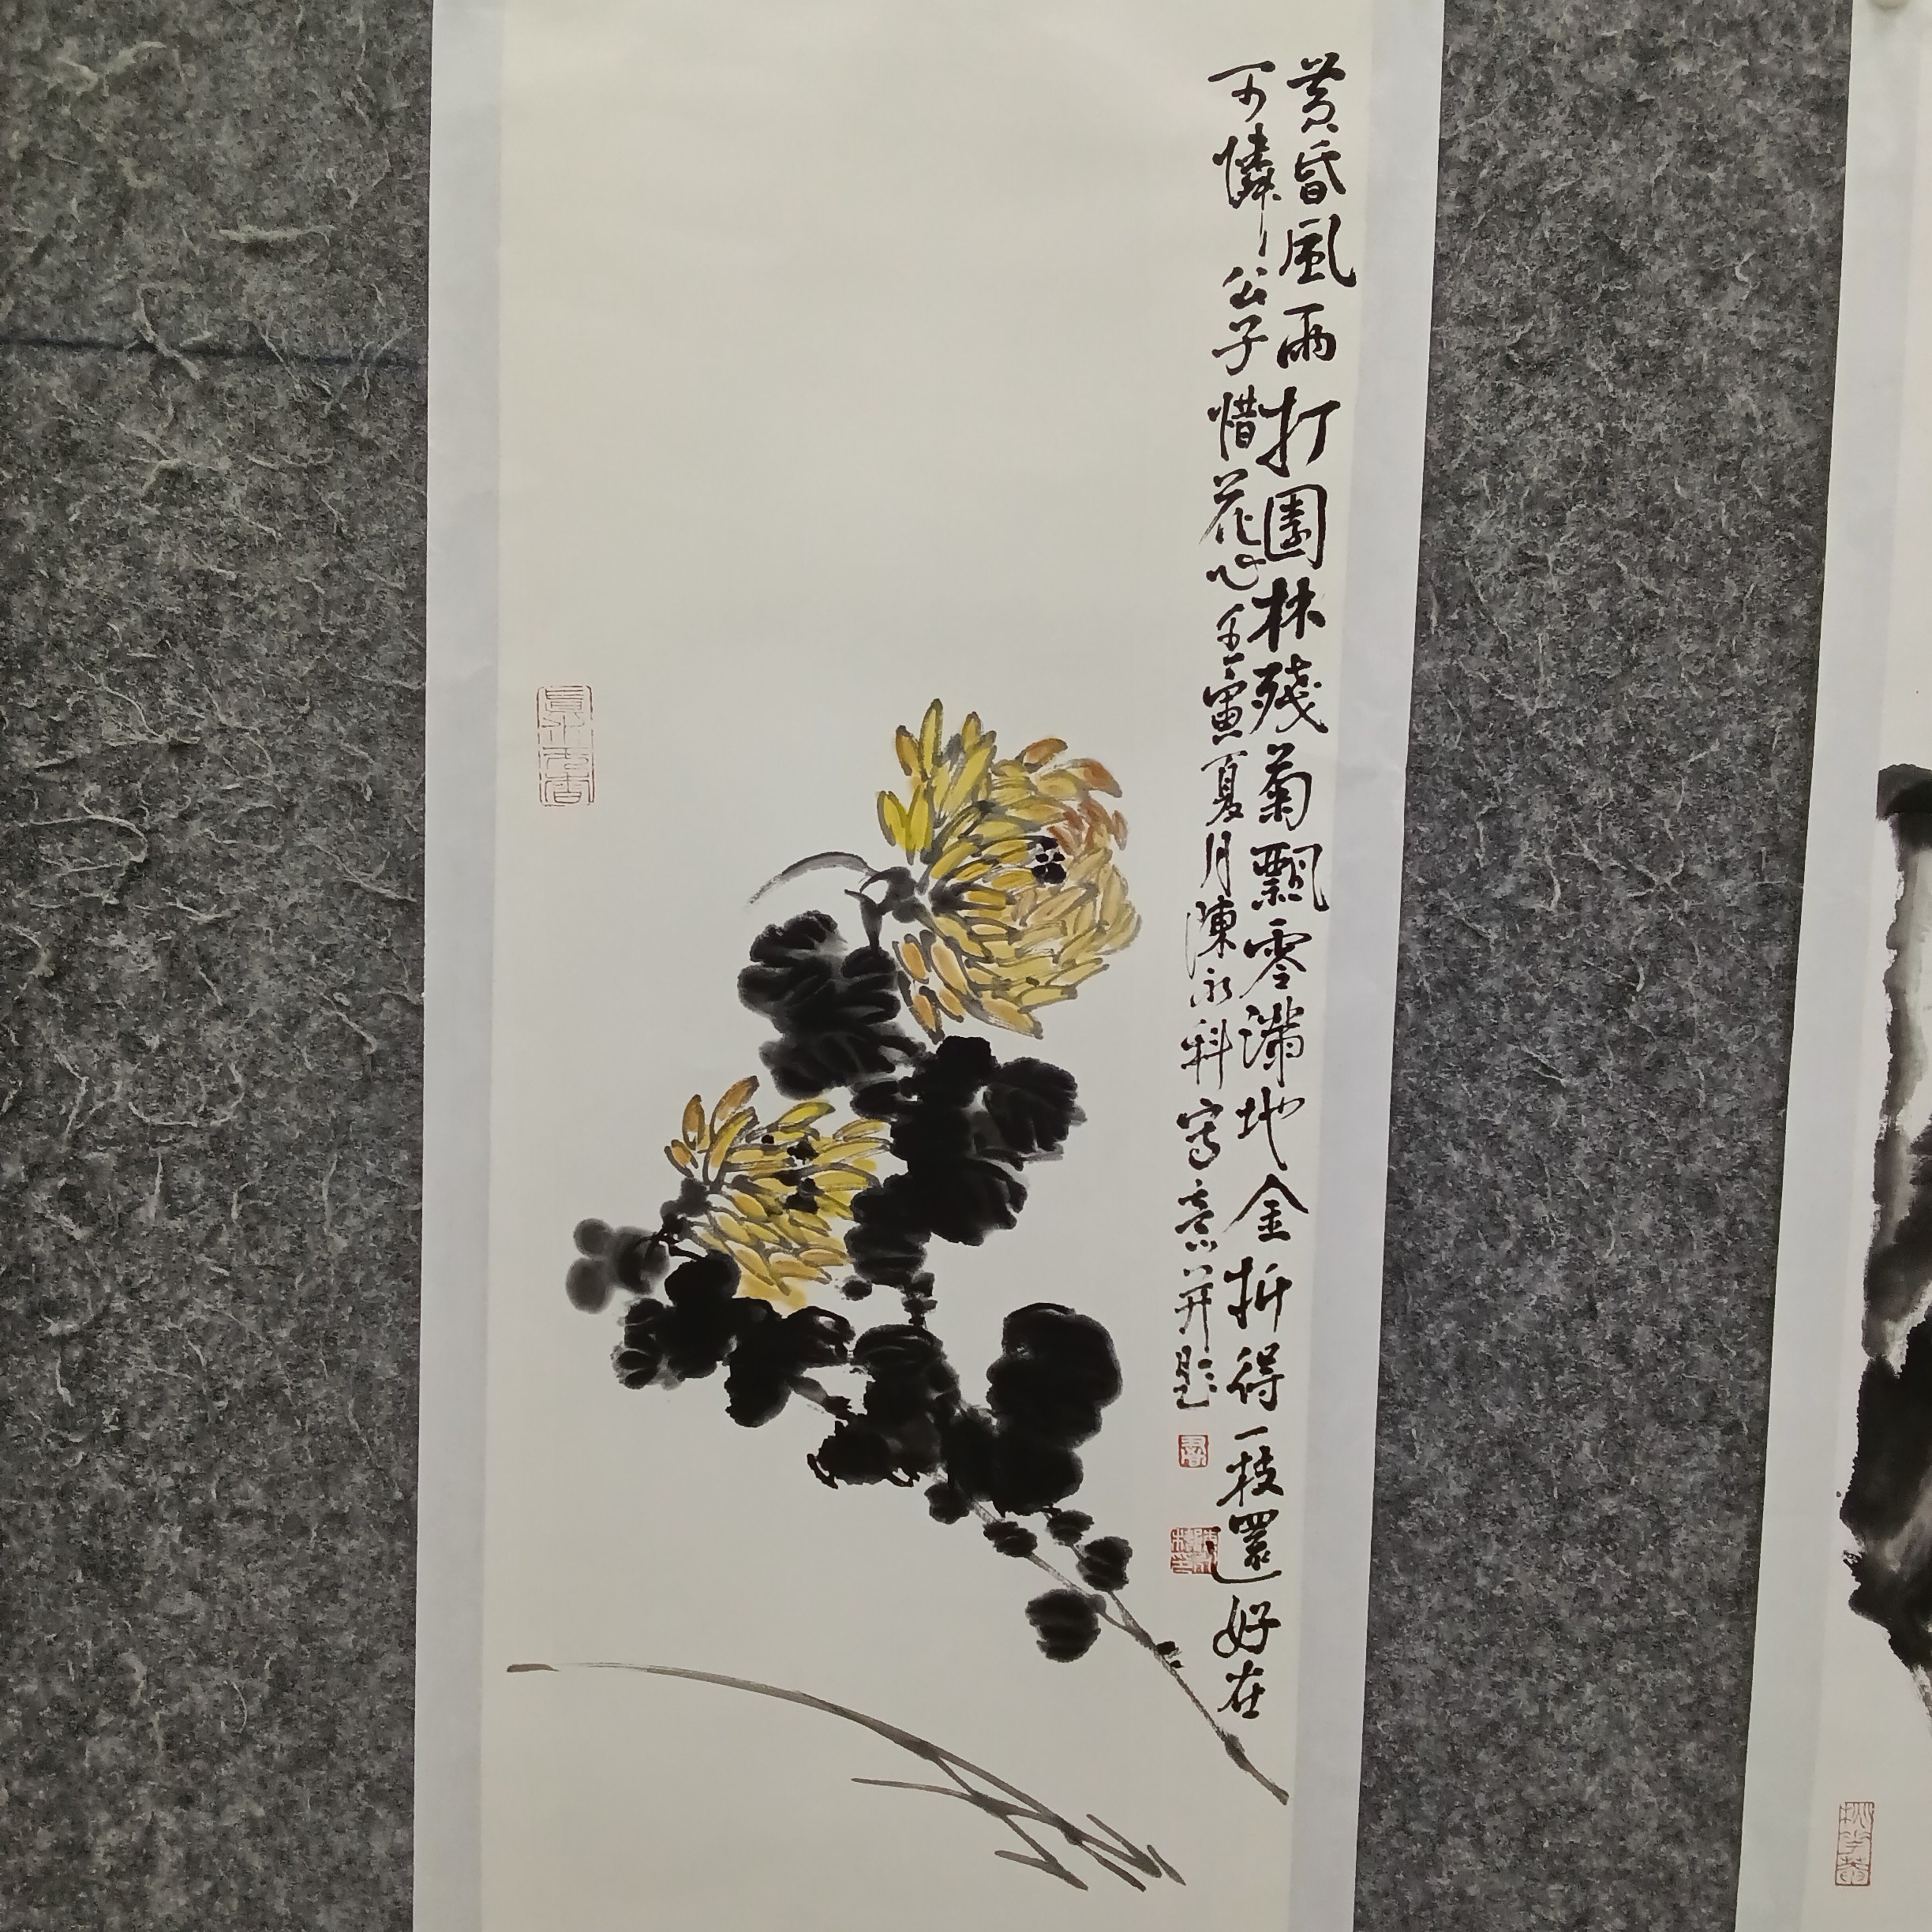 黄昏風雨打園林殘菊飄零滿地金折得一枝還好在
可憐公子惜花心壬寅夏月陳永科寫意并題